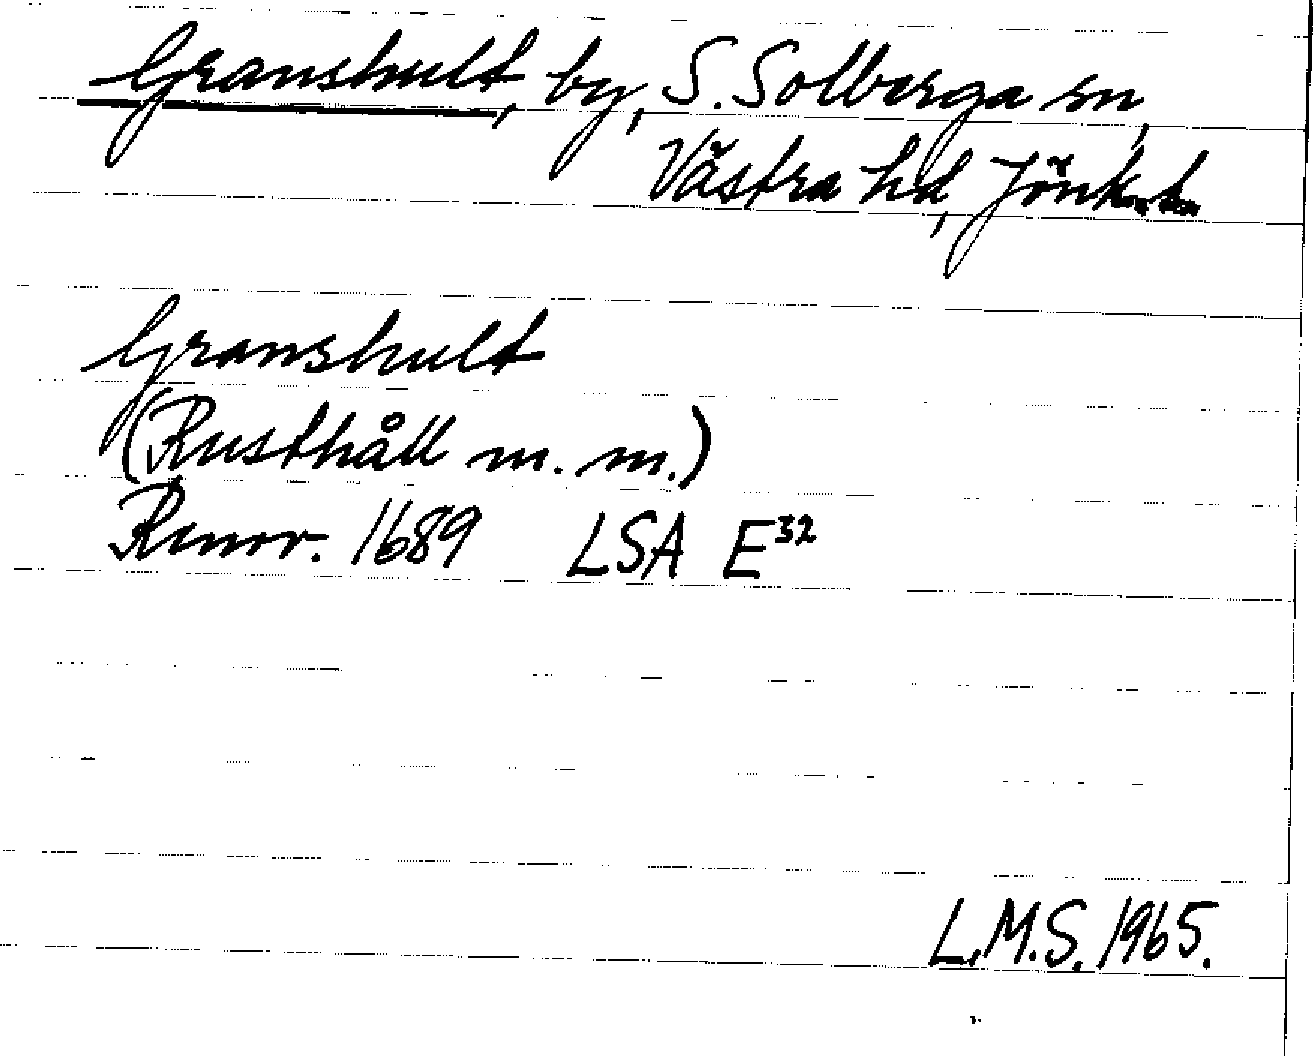 Granshult, by, S. Solberga sn,
Västra hd, Jönk. län
Granshult
(Rusthåll m. m.)
Renov. 1689 LSA E32
L.M.S. 1965.